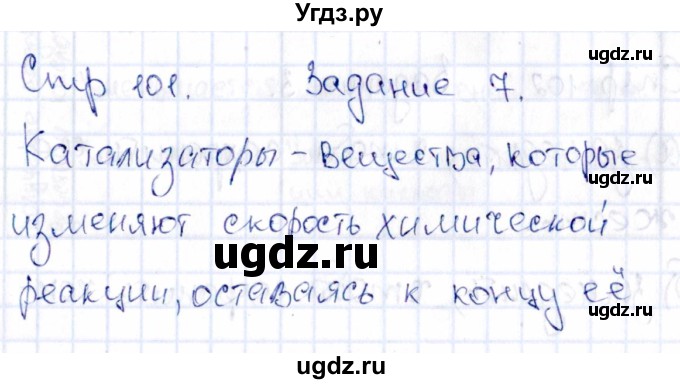 Угдз.ру
ugdz.ru
Стр 101. Задание 7.
ugdz.ru
Катализаторы - вещества, которые
ugdz.ru
изменяют скорость химической
ugdz.ru
ugdz.ru
реакции, оставаясь к концу её
ugdz.ru
ugdz.ru